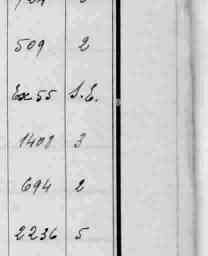 509 2
Ex 55 S.E.
1408 3
694 2
2236 5